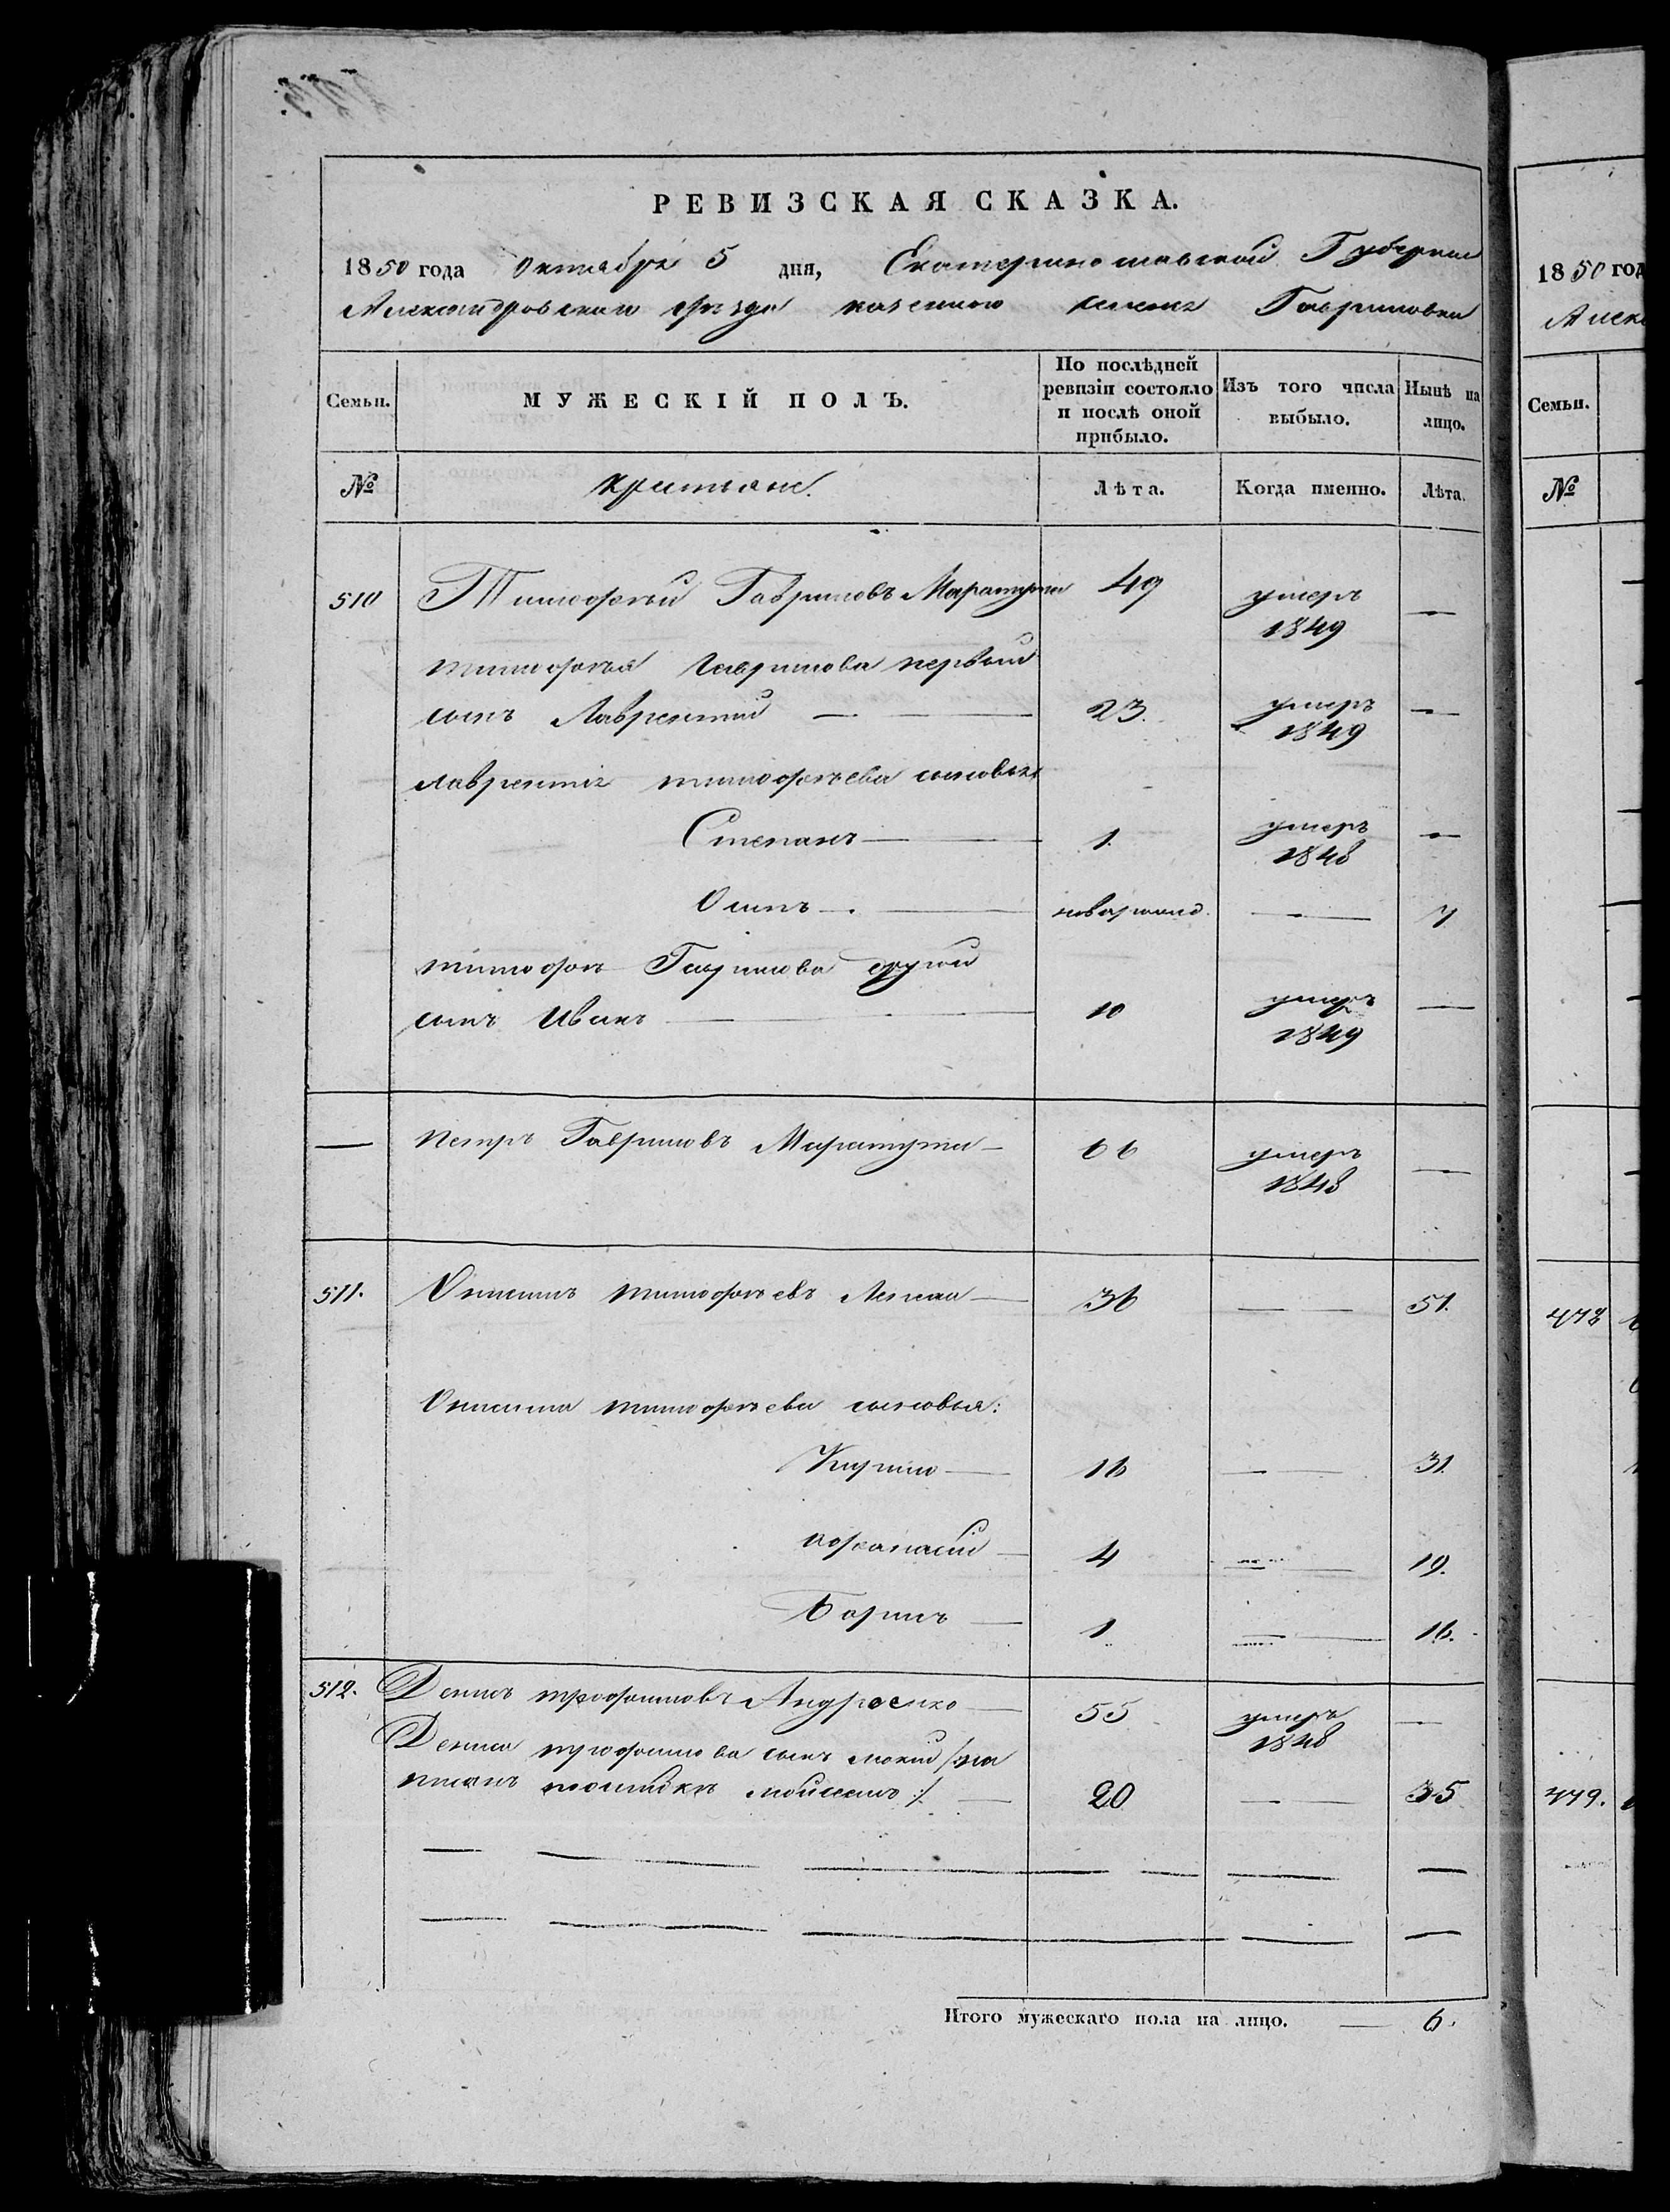 РЕВИЗСКАЯ СКАЗКА.
1850 года Октября 5 дня, Екатеринославской Губернии
Александровскаго уезда казенного селения Гавриловки
Семьи. МУЖЕСКІЙ ПОЛЪ. По послѣдней ревизіи состояло и послѣ оной прибыло. Изъ того числа выбыло. Нынѣ на лицо.
№ крестьяне. Лѣта. Когда именно. Лѣта.
510 Тимофѣй Гавриловъ 49 умеръ 1849 —
тимофѣя Гаврилова первый
сынъ Лаврентий — 23. умеръ 1849 —
Лаврентiя тимофѣева сыновья
Степанъ — 1. умеръ 1848 —
Осипъ — новорожд. — 7
тимофѣя Гаврилова другой
сынъ Иванъ — 10 умеръ 1849 —
— петръ Гавриловъ 66 умеръ 1848 —
511. Онисимъ тимофѣевъ — 36 — 51.
Онисима тимофѣева сыновья:
Кирило — 16 — 31.
Афанасий — 4 — 19.
Борисъ — 1 — 16.
512. Денисъ трофимовъ Андросенко — 55 умеръ 1848 —
Дениса трофимова сынъ мокий /:на
писанъ по ошибкѣ мойсеемъ:/ — 20 — 35
Итого мужескаго пола на лицо. — 6.
1850 год
Алекс
Семьи.
№
478
479.